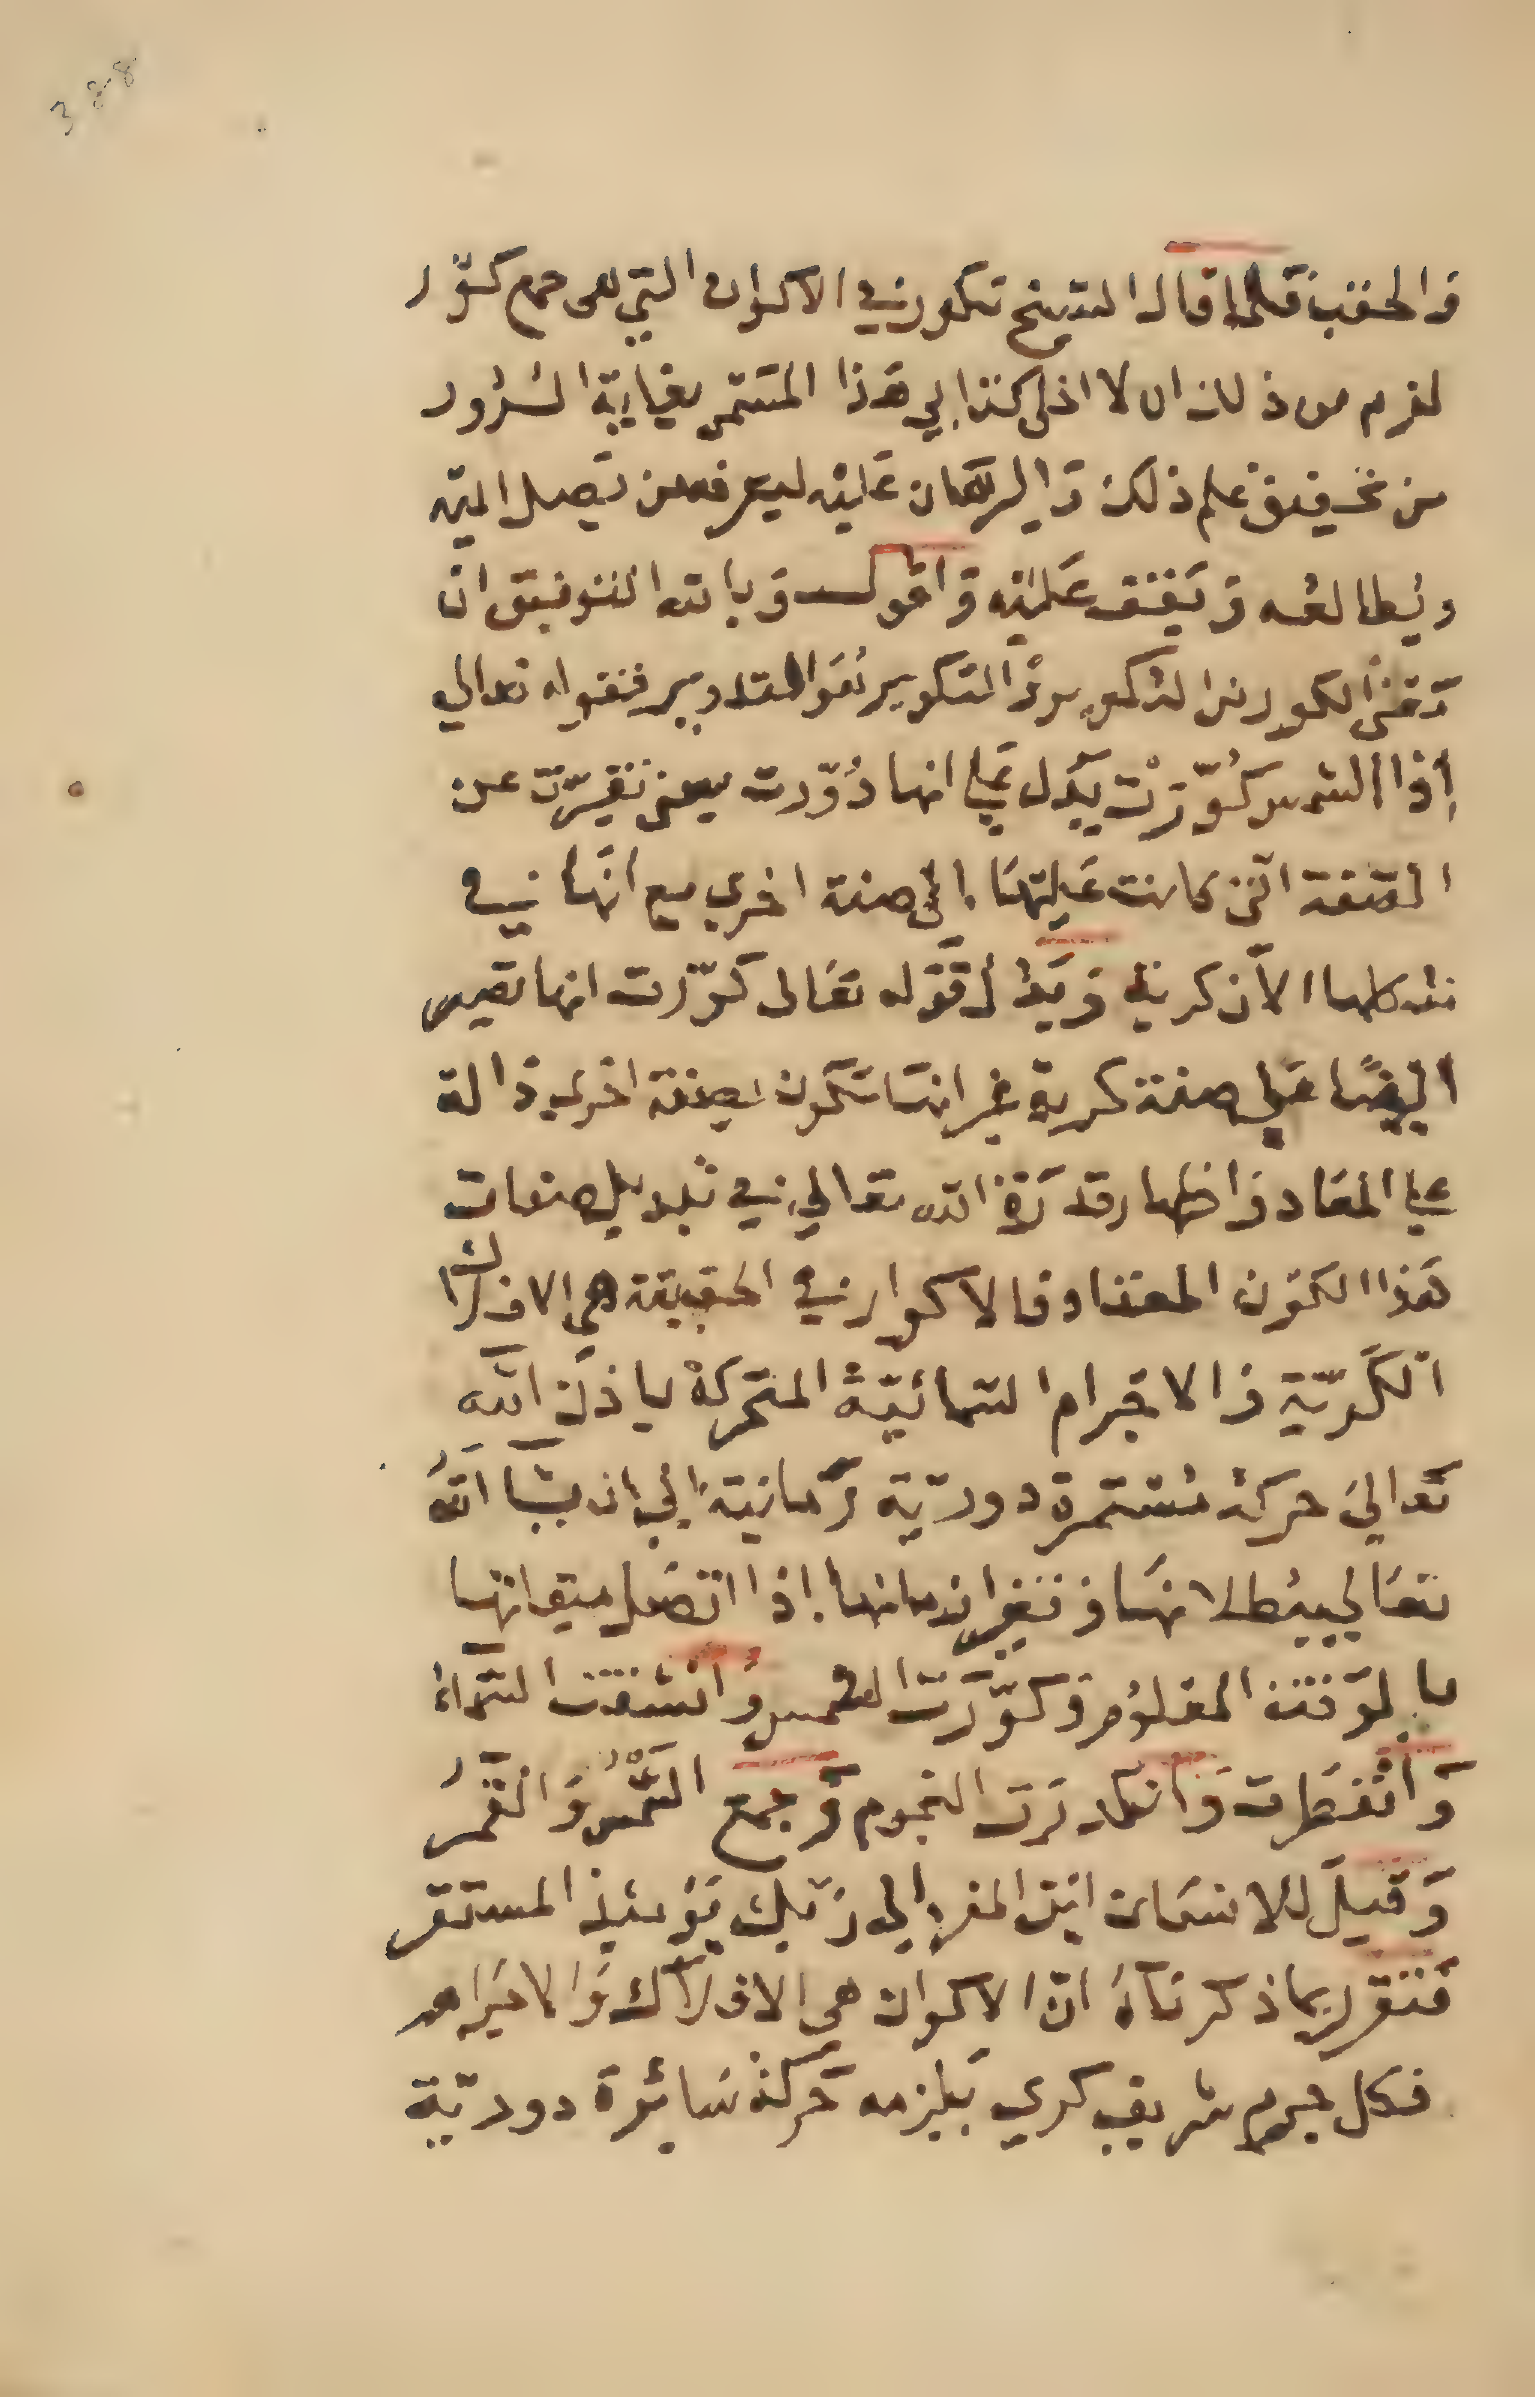 388
والحقب فلما قال الشيخ تكون في الاكوار التي هي جمع كور
لزم من ذلك ان لا اخلي كتابي هذا المسمى بغاية السرور
من تحقيق علم ذلك والبرهان عليه ليعرفه من يصل اليه
ويطالعه ويقف عليه واقول وبالله التوفيق ان
معنى الكور من التكوير والتكوير هو التدوير فقوله تعالي
إذا الشمس كُوّرَتْ يدل علي انها دُوّرت يعني تغيرت عن
الصفة التي كانت عليها إلى صفة اخري مع انها في
شكلها الآن كرية ويدل قوله تعالى كوّرت انها تصير
ايضًا على صفة كرية غير انها تكون بصفة اخرى دالة
علي المعاد واظهار قدرة الله تعالي في تبديل صفات
هذا الكون المعتاد فالاكوار في الحقيقة هي الافلاك
الكَريّة والاجرام السمائيّة المتحركة باذن الله
تعالىَ حركة مستمرة دوريّة زمانية إلى ان يشا الله
تعالي ببطلانها وتغير ازمانها إذا اتصل ميقاتها
بالوقت المعلوم وكوّرَت الشمس وَانشقت السّماءُ
وَانفطَرت وَانكدرَت النجوم وَجمع الشّمْسُ وَالقَمَرُ
وَقيلَ للانسَان اين المفر إلى رَبّك يَوْمئِذٍ المستقر
فتقرر بما ذكرناهُ انّ الاكوار هي الافلاك وَالاجرام
فكل جرم شريف كري يلزمه حركة سَائرة دوريّة